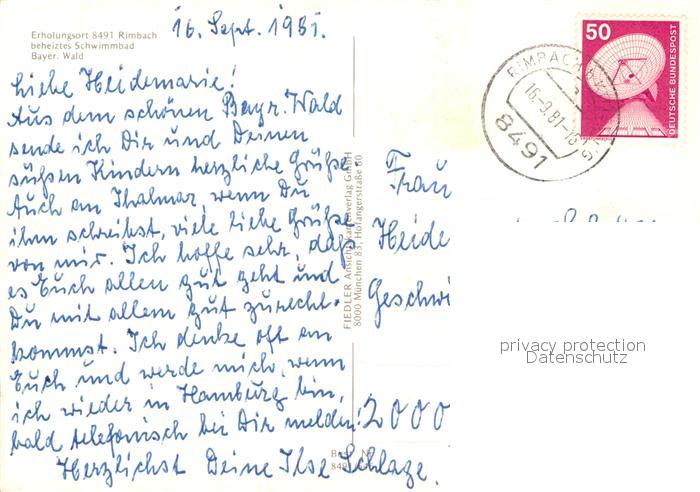 Erholungsort 8491 Rimbach
beheiztes Schwimmbad
Bayer. Wald
16. Sept. 1981.
Liebe Heidemarie!
Aus dem schönen Bayr. Wald
sende ich Dir und Deinen
süßen Kindern herzliche Grüße.
Auch an Thalmar, wenn Du
ihm schreibst, viele liebe Grüße
von mir. Ich hoffe sehr, daß
es Euch allen gut geht und
Du mit allem gut zurecht-
kommst. Ich denke oft an
Euch und werde mich, wenn
ich wieder in Hamburg bin,
bald telefonisch bei Dir melden!
Herzlichst Deine Ilse Schlage.
FIEDLER Ansichtskartenverlag GmbH
8000 München 83, Hofangerstraße 60
50
DEUTSCHE BUNDESPOST
RIMPACH
16.-9.81-16
8491
Frau
Heide
Geschwi
2000
privacy protection
Datenschutz